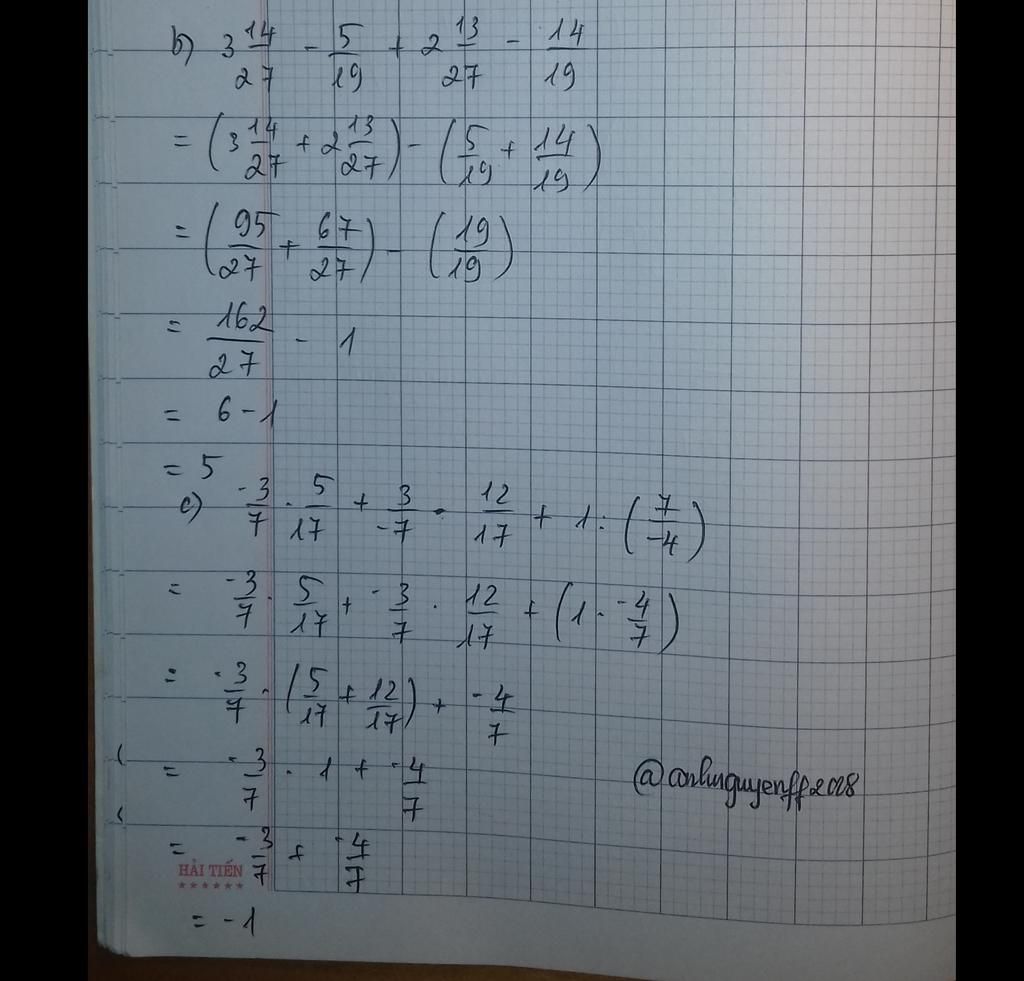 b) 3 14/27 - 5/19 + 2 13/27 - 14/19
= (3 14/27 + 2 13/27) - (5/19 + 14/19)
= (95/27 + 67/27) - (19/19)
= 162/27 - 1
= 6 - 1
= 5
c) -3/7 . 5/17 + 3/-7 . 12/17 + 1 : (7/-4)
= -3/7 . 5/17 + -3/7 . 12/17 + (1 . -4/7)
= -3/7 . (5/17 + 12/17) + -4/7
= -3/7 . 1 + -4/7
@anhnguyenff2008
= -3/7 + -4/7
HẢI TIẾN
= -1